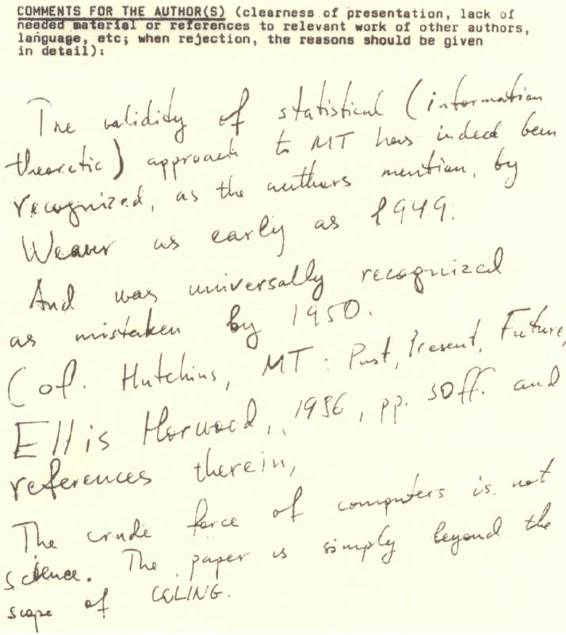 COMMENTS FOR THE AUTHOR(S) (clearness of presentation, lack of
needed material or references to relevant work of other authors,
language, etc; when rejection, the reasons should be given
in detail):
The validity of statistical (information
theoretic) approach to MT has indeed been
recognized, as the authors mention, by
Weaver as early as 1949.
And was universally recognized
as mistaken by 1950.
(cf. Hutchins, MT: Past, Present, Future,
Ellis Horwood, 1986, pp. 30ff. and
references therein,
The crude force of computers is not
science. The paper is simply beyond the
scope of COLING.